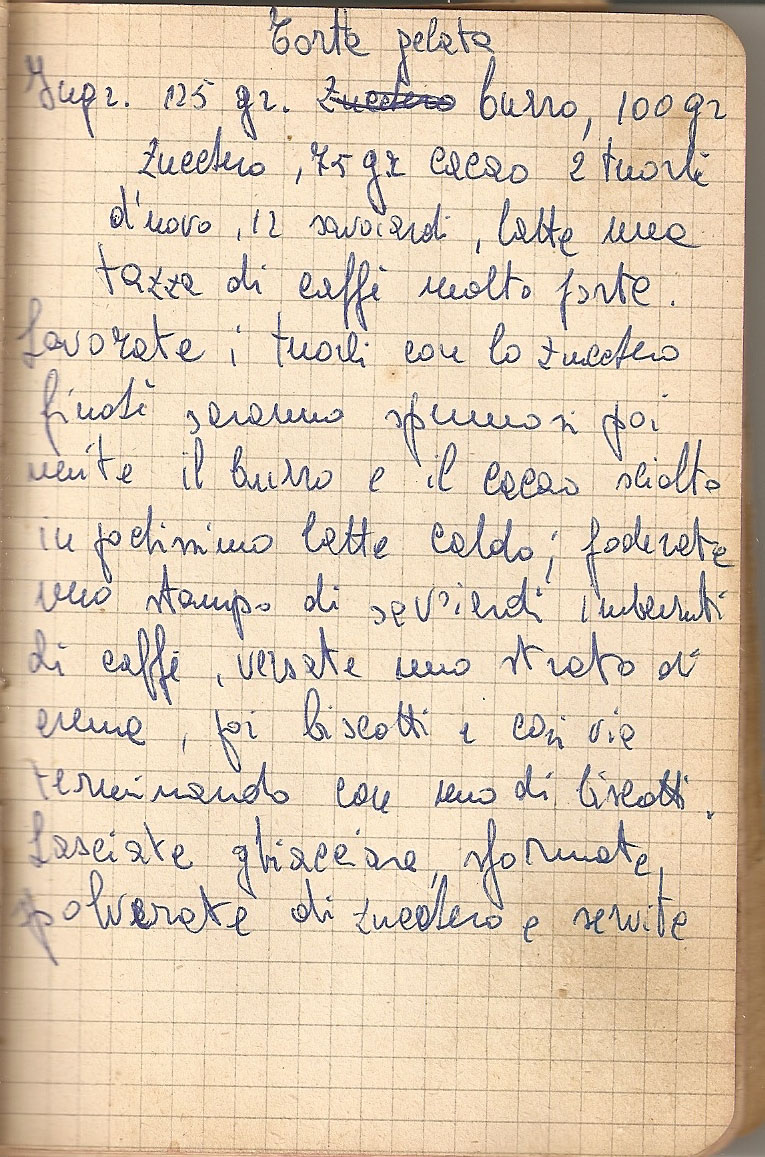 Torta gelata
Ingr. 125 gr. Zucchero burro, 100 gr
zucchero, 75 gr cacao 2 tuorli
d'uovo, 12 savoiardi, latte una
tazza di caffè molto forte.
Lavorate i tuorli con lo zucchero
finchè saranno spumosi poi
unite il burro e il cacao sciolto
in pochissimo latte caldo; foderate
uno stampo di savoiardi imbevuti
di caffè, versate uno strato di
crema, poi biscotti e così via
terminando con uno di biscotti.
Lasciate ghiacciare, sformate,
polverate di zucchero e servite